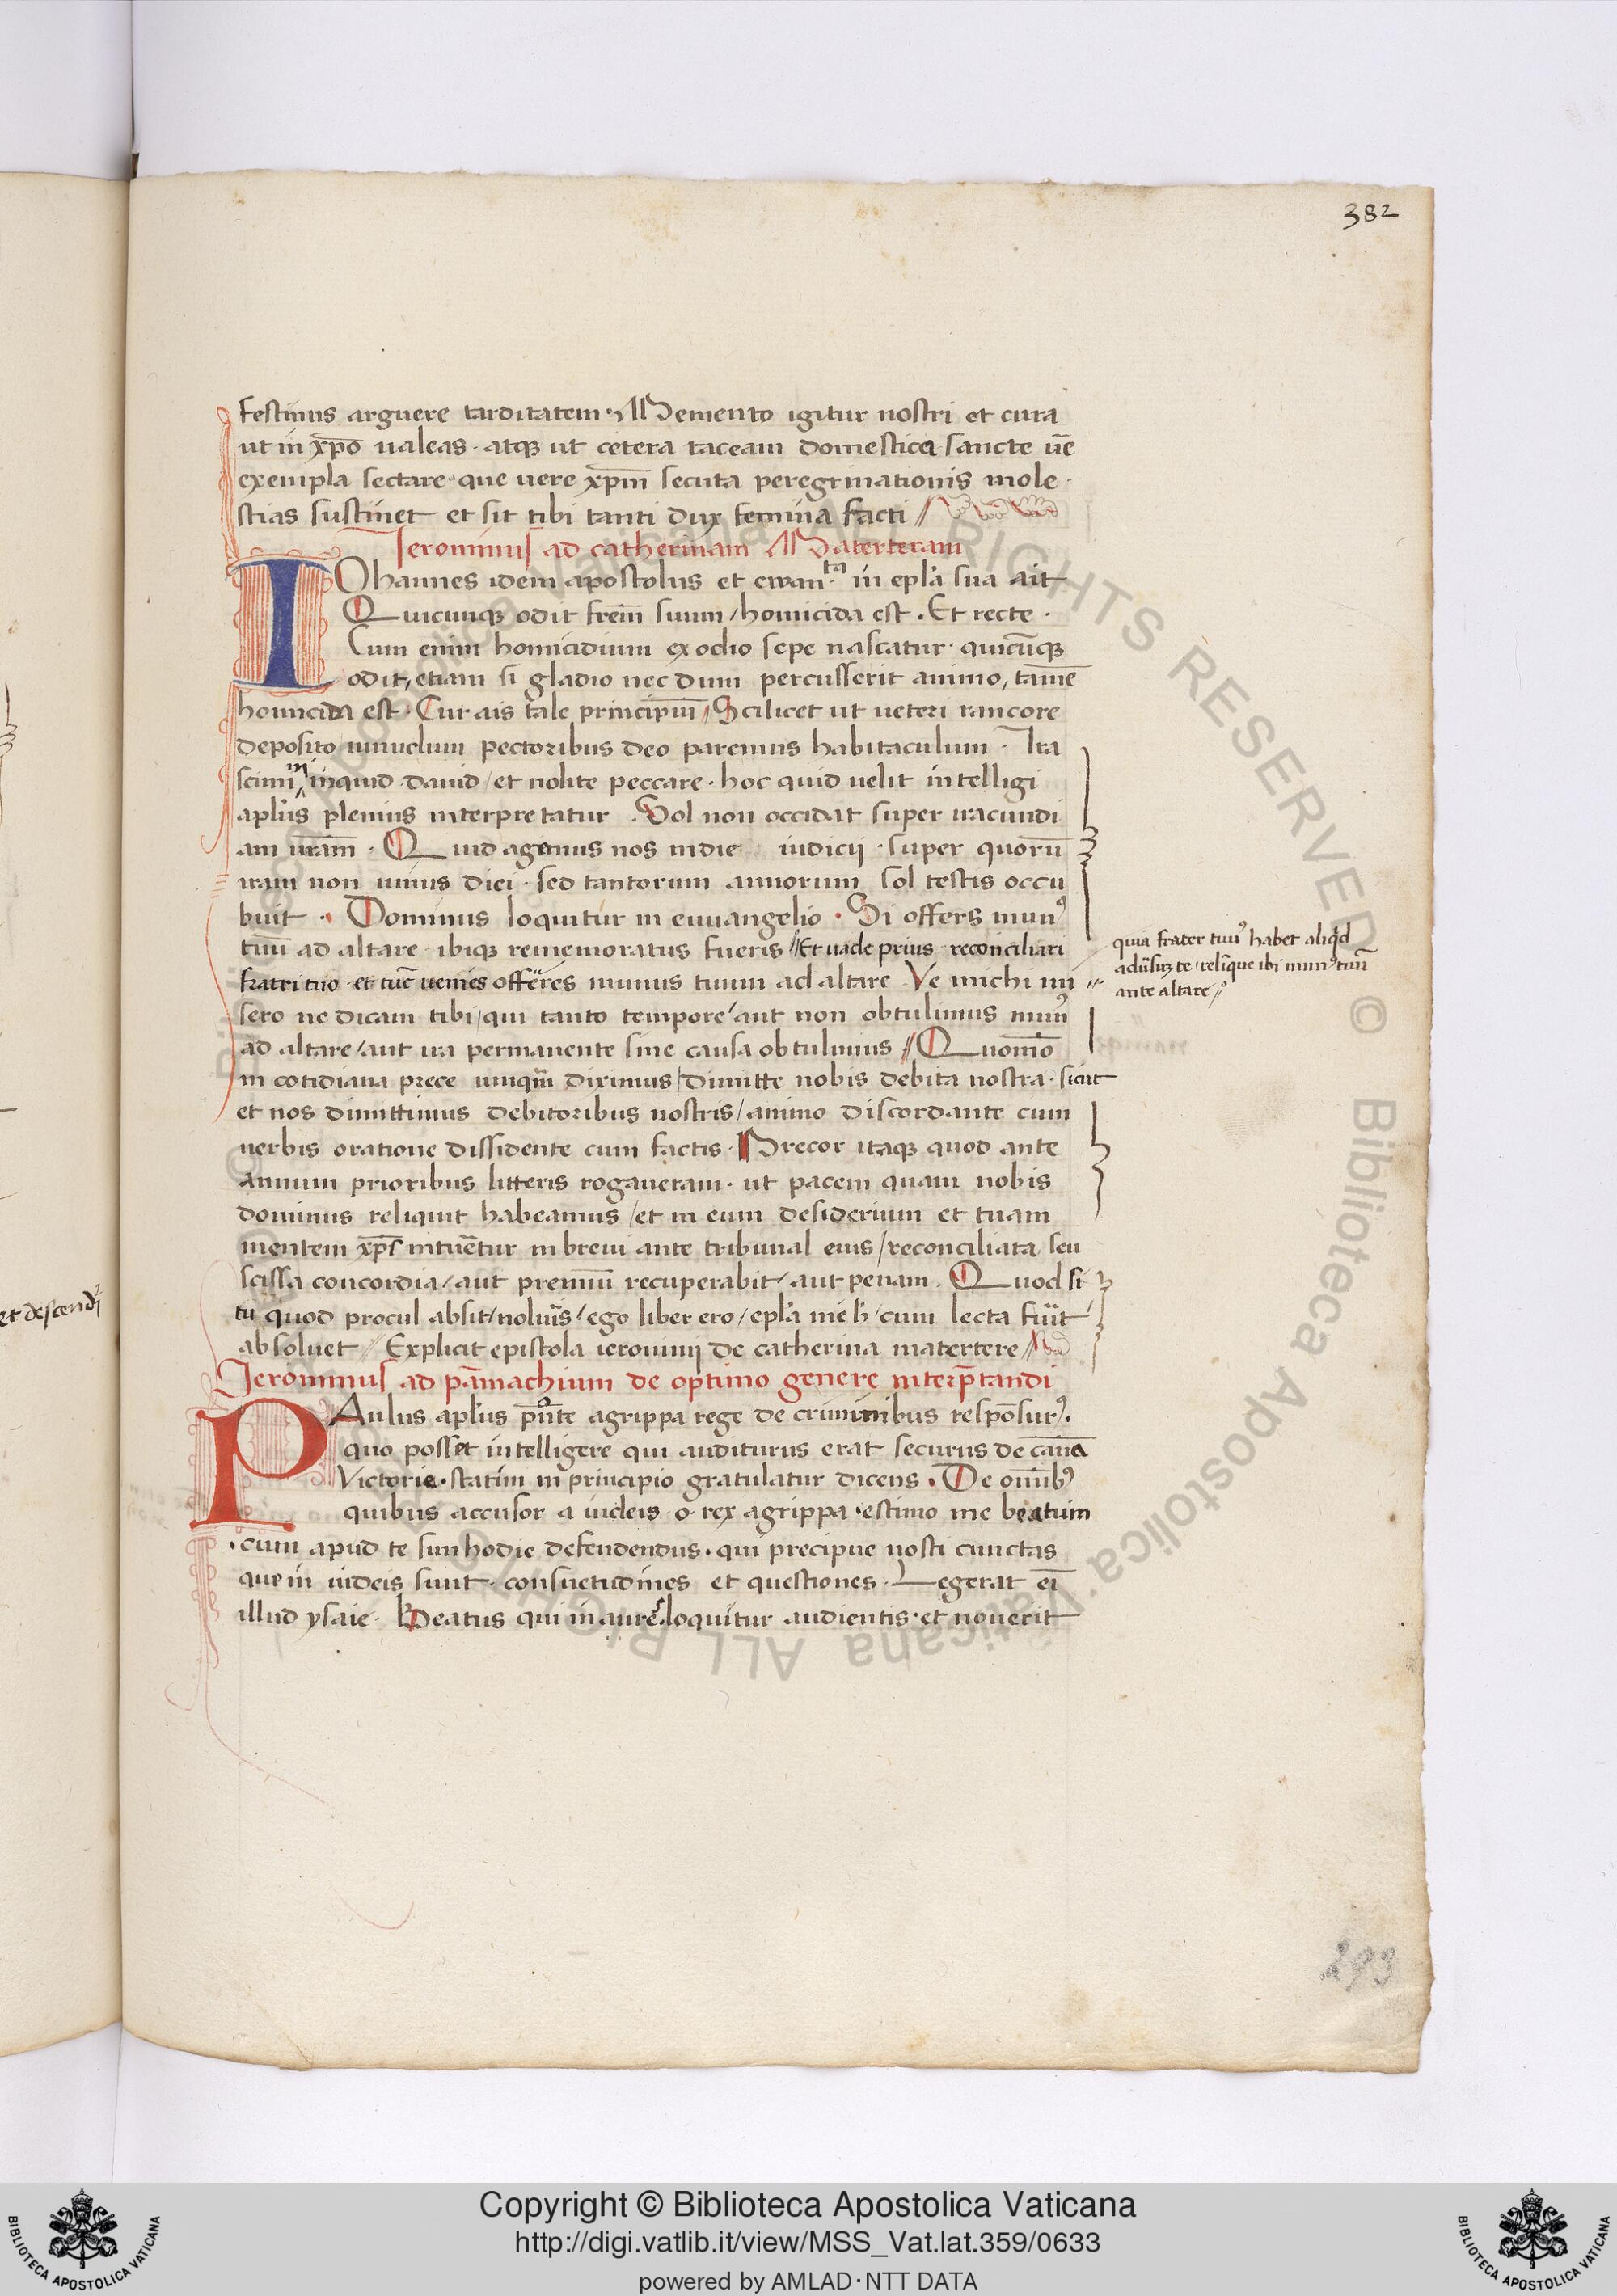 382
festinus arguere tarditatem · Memento igitur nostri et cura
ut in xp̄o ualeas · atqꝫ ut cetera taceam domestice sancte ūe
exempla sectare · que uere xp̄m secuta peregrinationis mole·
stias sustinet et sit tibi tanti dux femina facti //
Ieronimus ad catherinam Materteram
IOhannes idem apostolus et ewan.ta in epl̄a sua ait
Quicunqꝫ odit frēm suum / homicida est . Et recte ·
Cum enim homicidium ex odio sepe nascatur · quicūqꝫ
odit, etiam si gladio nec dum percusserit animo, tamē
homicida est · Cur ais tale principiū // Scilicet ut ueteri rancore
deposito mundum pectoribus deo paremus habitaculum · Ira
scimin inquid dauid / et nolite peccare · hoc quid uelit intelligi
apl̄us plenius interpretatur . Sol non occidat super iracundi
am ur̄am · Quid agemus nos indie iudicii · super quorū
iram non unius diei · sed tantorum annorum sol testis occu
buit · Dominus loquitur in euuangelio · Si offers munꝰ
tuū ad altare · ibiqꝫ rememoratus fueris // Et uade prius reconciliari
fratri tuo · et tūc uenies offeres munus tuum ad altare Ve michi mi
sero ne dicam tibi / qui tanto tempore / aut non obtulimus munꝰ
ad altare / aut ira permanente sine causa obtulimus // Quomō
in cotidiana prece unqūā diximus / dimitte nobis debita nostra · sicut
et nos dimittimus debitoribus nostris / animo discordante cum
uerbis oratione dissidente cum factis · Precor itaqꝫ quod ante
annum prioribus litteris rogaueram · ut pacem quam nobis
dominus reliquit habeamus / et in eum desiderium et tuam
mentem xp̄s intuētur in breui ante tribunal eius / reconciliata seu
scissa concordia / aut premiū recuperabit / aut penam . Quod si
tu quod procul absit / nolu̅is / ego liber ero / epl̄a me h̄ / cum lecta fuīt
absoluet // Explicit epistola ieronimi de catherina matertere //
Ieronimus ad pāmachium de optimo genere interp̄tandi
PAulus apl̄us pn̄te agrippa rege de criminibus responsurꝰ.
quo posset intelligere qui auditurus erat securus de cāuā
Victorie · statim in principio gratulatur dicens . De omībꝰ
quibus accusor a iudeis · o · rex agrippa · estimo me beatum
·cum apud te sim hodie defendendus · qui precipue nosti cunctas
que in iudeis sunt · consuetudines et questiones · Legerat eī
illud ysaie · Beatus qui in aures loquitur audientis · et nouerit
quia frater tuuꝰ habet aliqd̄
adūsuꝫ te · relinque ibi munꝰ tuū
ante altare //
et descendi
293
Copyright © Biblioteca Apostolica Vaticana
http://digi.vatlib.it/view/MSS_Vat.lat.359/0633
powered by AMLAD·NTT DATA
BIBLIOTECA APOSTOLICA VATICANA
BIBLIOTECA APOSTOLICA VATICANA
© Biblioteca Apostolica Vaticana ALL RIGHTS RESERVED